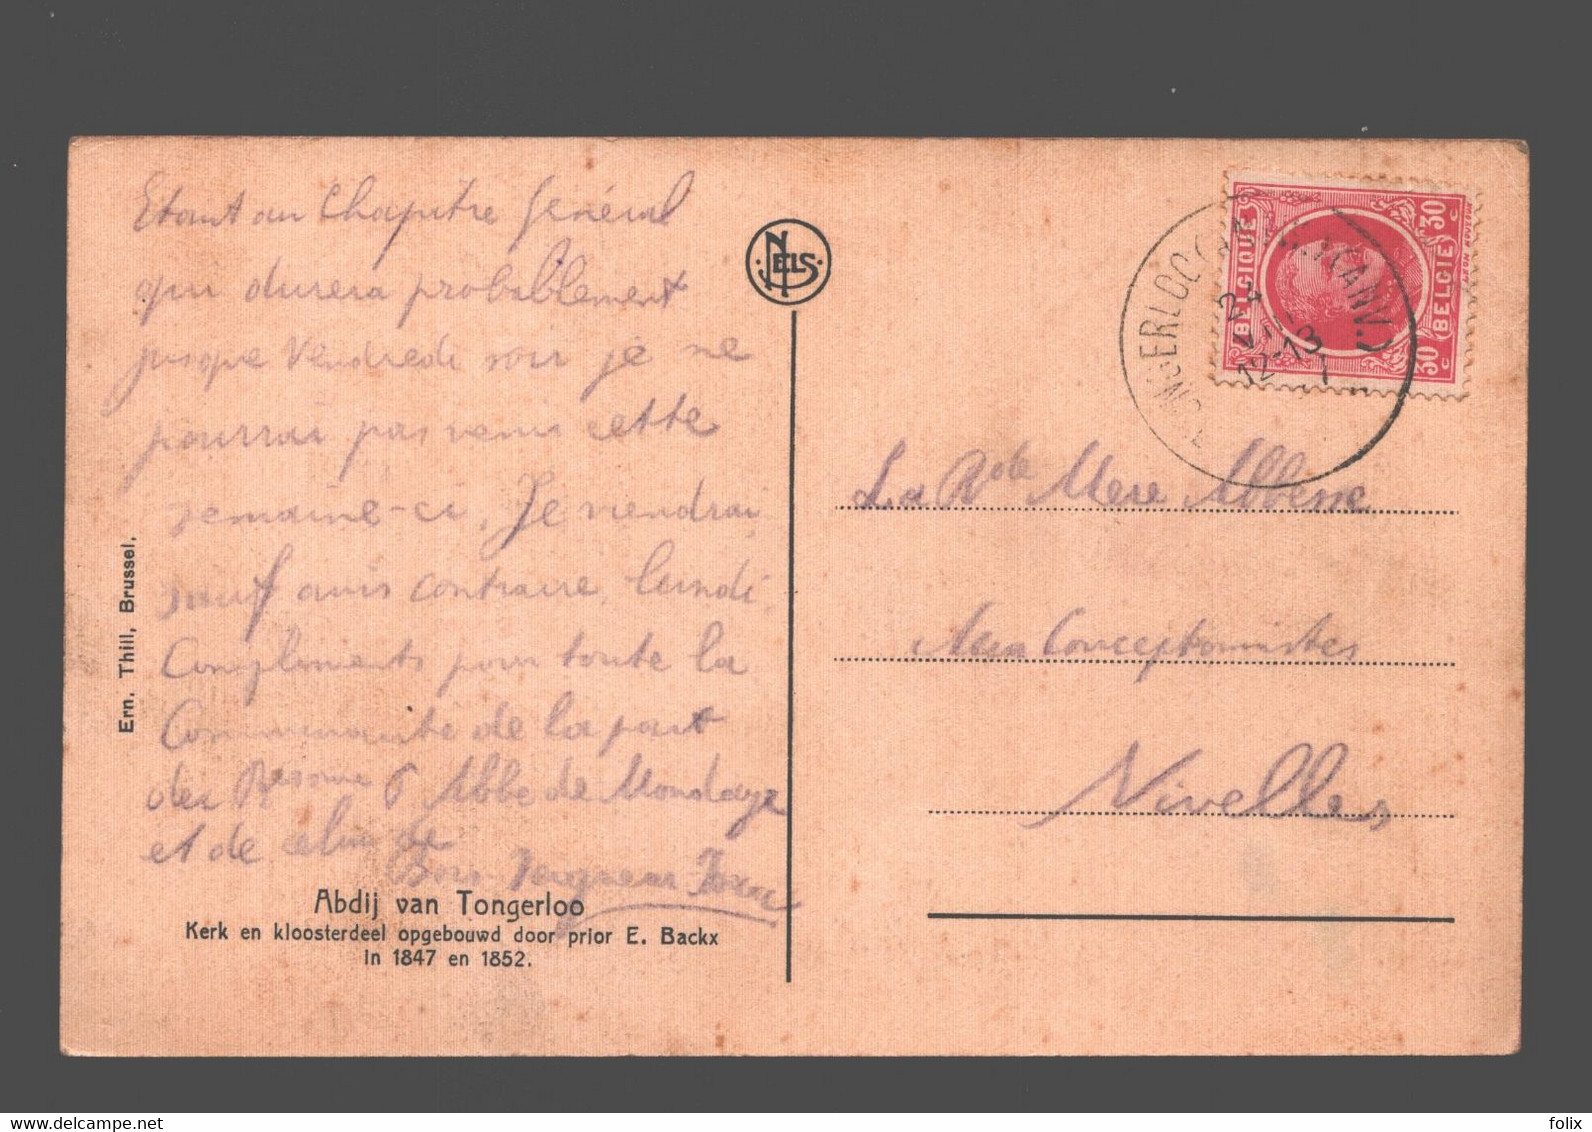 Etant au Chapitre Général
qui durera probablement
jusque Vendredi soir je ne
pourrai pas venir cette
semaine-ci. Je viendrai
sauf avis contraire, lundi.
Compliments pour toute la
Communauté de la part
des Abbé de Mondaye
et de celui de
Bois Seigneur Isaac
Abdij van Tongerloo
Kerk en kloosterdeel opgebouwd door prior E. Backx
in 1847 en 1852.
Ern. Thill, Brussel.
NELS
BELGIQUE
BELGIË
30 c
30 c
12-13
La Rde Mère Abbesse
Conceptionnistes
Nivelles
folix
delcampe.net